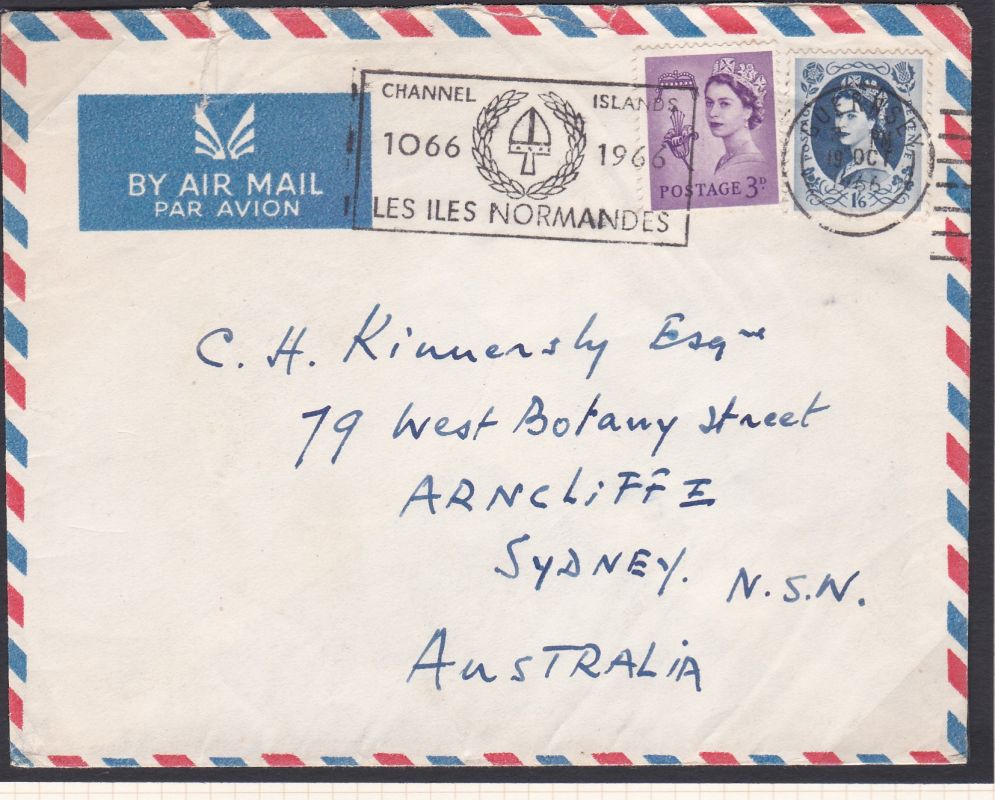 BY AIR MAIL
PAR AVION
CHANNEL ISLANDS
1066 1966
LES ILES NORMANDES
POSTAGE 3D.
POSTAGE REVENUE
1/6
GUERNSEY
19 OCT
1966
C. H. Kinnersly Esqre
79 West Botany Street
ARNCLIFFE
SYDNEY. N.S.W.
AUSTRALIA